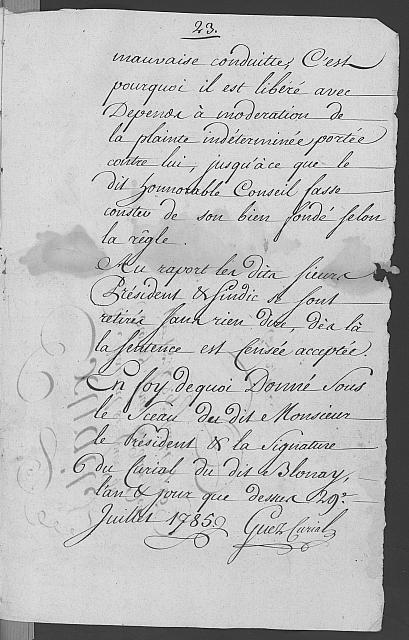 23.
mauvaise conduitte, C'est
pourquoi il est libéré avec
Depends à moderation de
la plainte indéterminée portée
contre lui, jusqu'àce que le
dit honnorable Conseil fasse
conster de son bien fondé selon
la rêgle.
Au raport les dits sieurs
Président & Sindic se sont
retirés sans rien dire, dès là
la sentence est sensée acceptée.
En foy dequoi Donné sous
le Sceau du dit Monsieur
le Président & la Signature
du Curial du dit Blonay,
l'an & jour que dessus 29e.
Juillet 1785.
Guex Curial